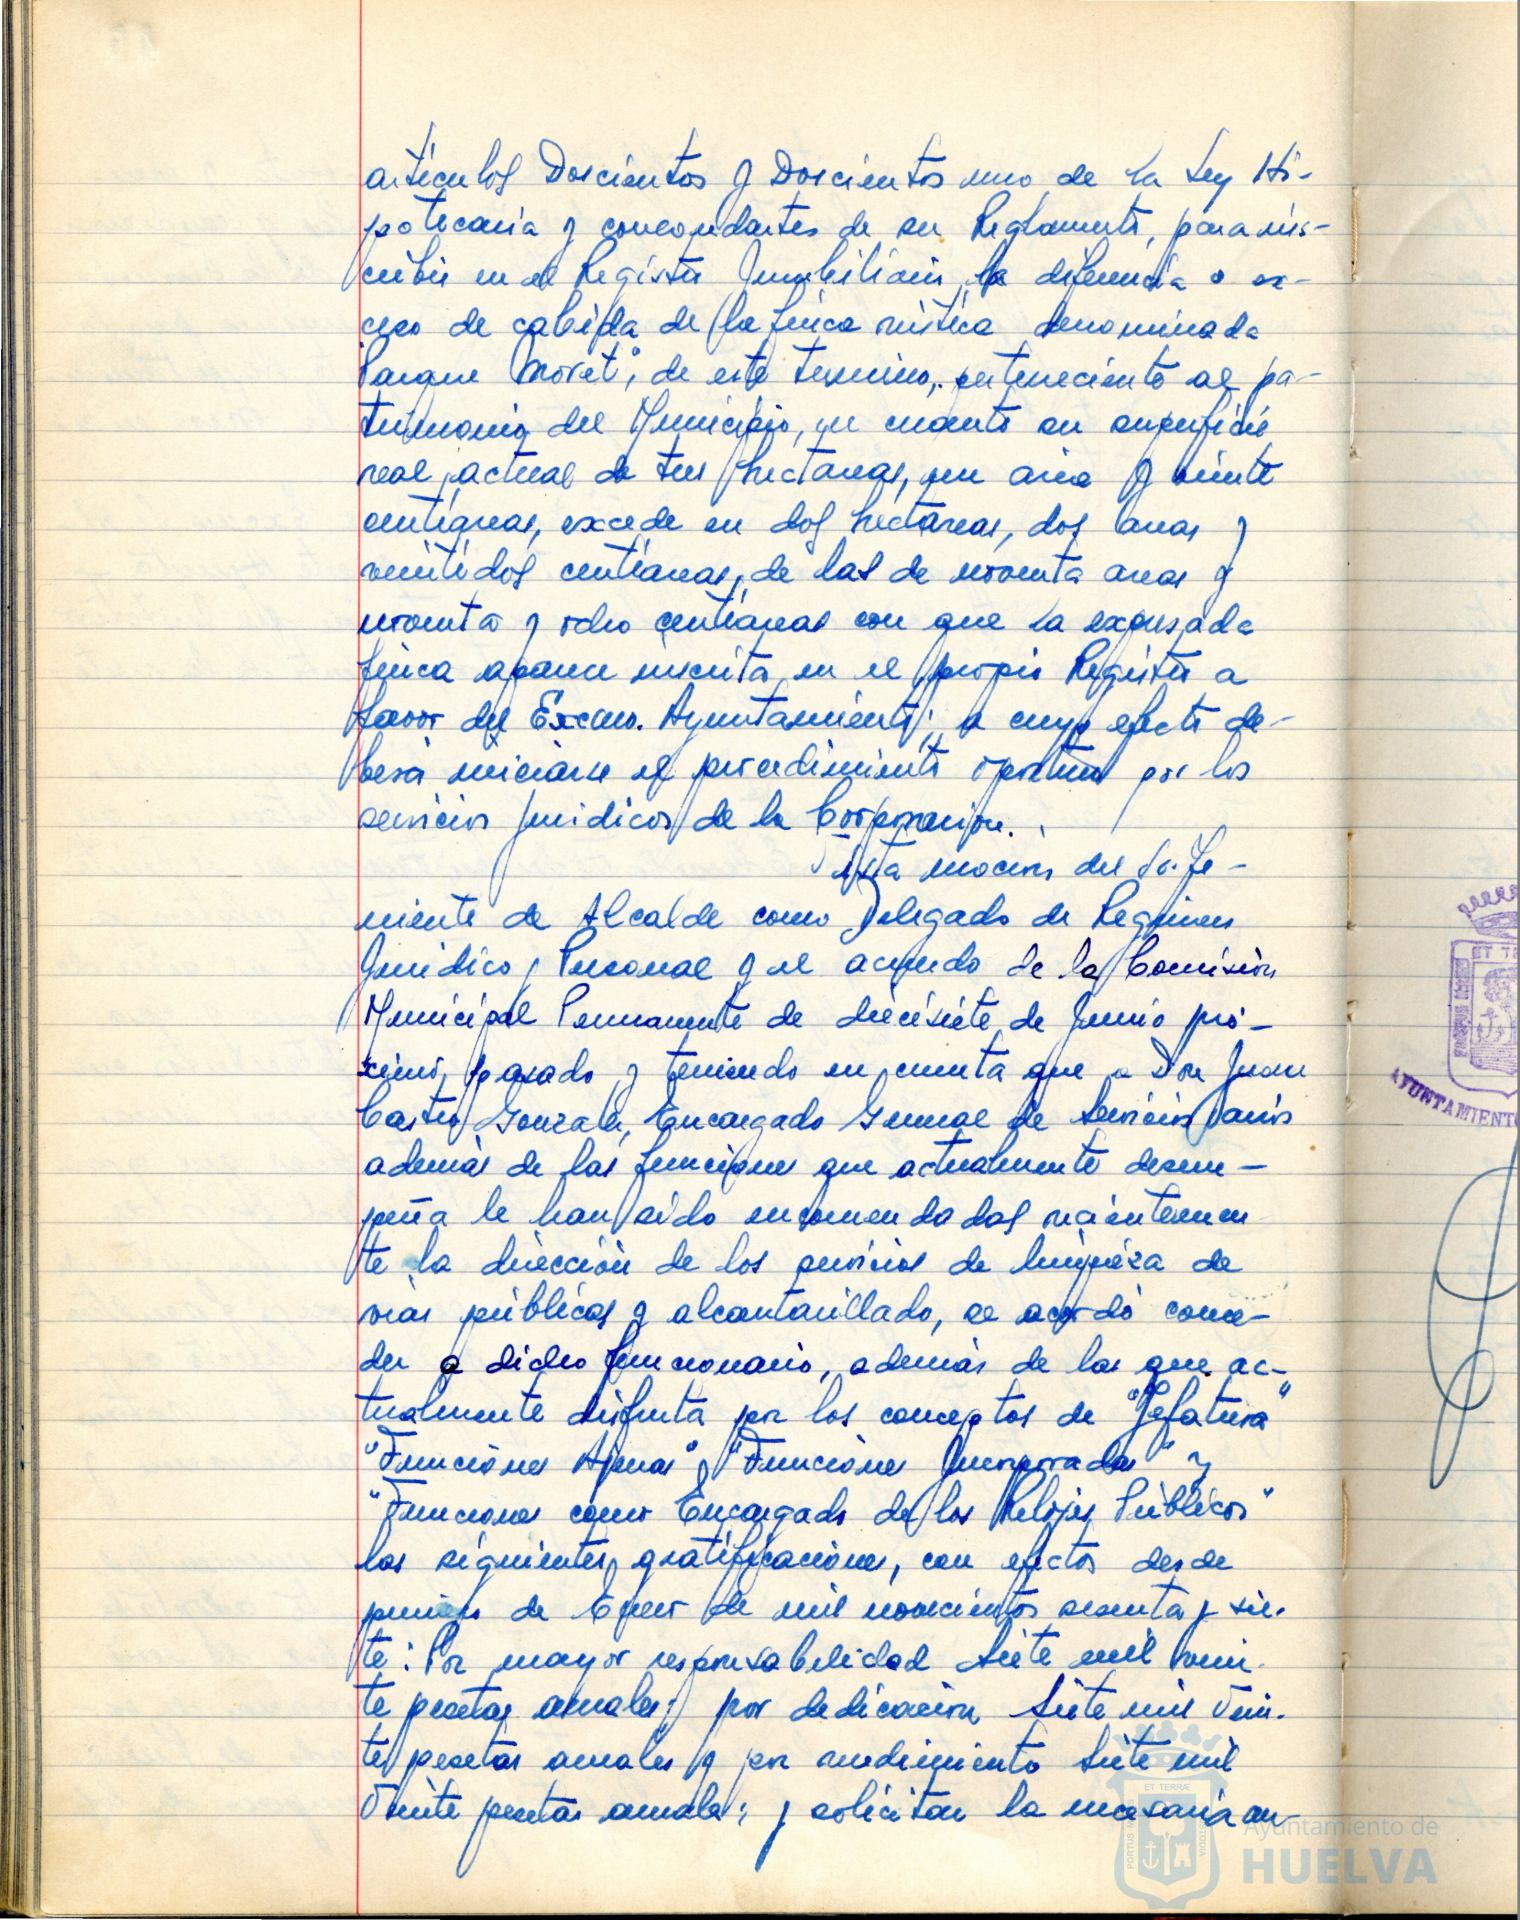 artículos Doscientos y Doscientos uno de la Ley Hi-
potecaria y concordantes de su Reglamento, para ins-
cribir en el Registro Inmobiliario, la diferencia o ex-
ceso de cabida de la finca rústica denominada
"Parque Moret", de este término, perteneciente al pa-
trimonio del Municipio, en cuanto su superficie
real, actual de tres hectareas, un area y veinte
centiareas, excede en dos hectáreas, dos areas y
veintidos centiareas, de las de noventa areas y
noventa y ocho centiareas con que la expresada
finca aparece inscrita en el propio Registro a
favor del Excmo. Ayuntamiento; a cuyo efecto de-
berá iniciarse el procedimiento oportuno por los
servicios jurídicos de la Corporación.
Vista moción del Sr. Te-
niente de Alcalde como Delegado de Regimen
Juridico y Personal y el acuerdo de la Comisión
Municipal Permanente de diecisiete de Junio pró-
ximo pasado y teniendo en cuenta que a Don Juan
Castro Gonzalez, Encargado General de Servicios Varios
además de las funciones que actualmente desem-
peña le han sido encomendadas recientemen
te la dirección de los servicios de limpieza de
vias públicas y alcantarillado, se acordó conce-
der a dicho funcionario, además de las que ac-
tualmente disfruta por los conceptos de "Jefatura"
"Funciones Ajenas" y "Funciones Incorporadas" y
"Funciones como Encargado de los Relojes Públicos"
las siguientes gratificaciones, con efectos desde
primero de Enero de mil novecientos sesenta y sie-
te: Por mayor responsabilidad Siete mil vein-
te pesetas anuales; por dedicación Siete mil vein-
te pesetas anuales y por rendimiento Siete mil
Veinte pesetas anuales; y solicitar la necesaria au-
ET TE
AYUNTAMIENTO
ET TERRÆ
PORTUS M
CUSTODIA
Ayuntamiento de
HUELVA